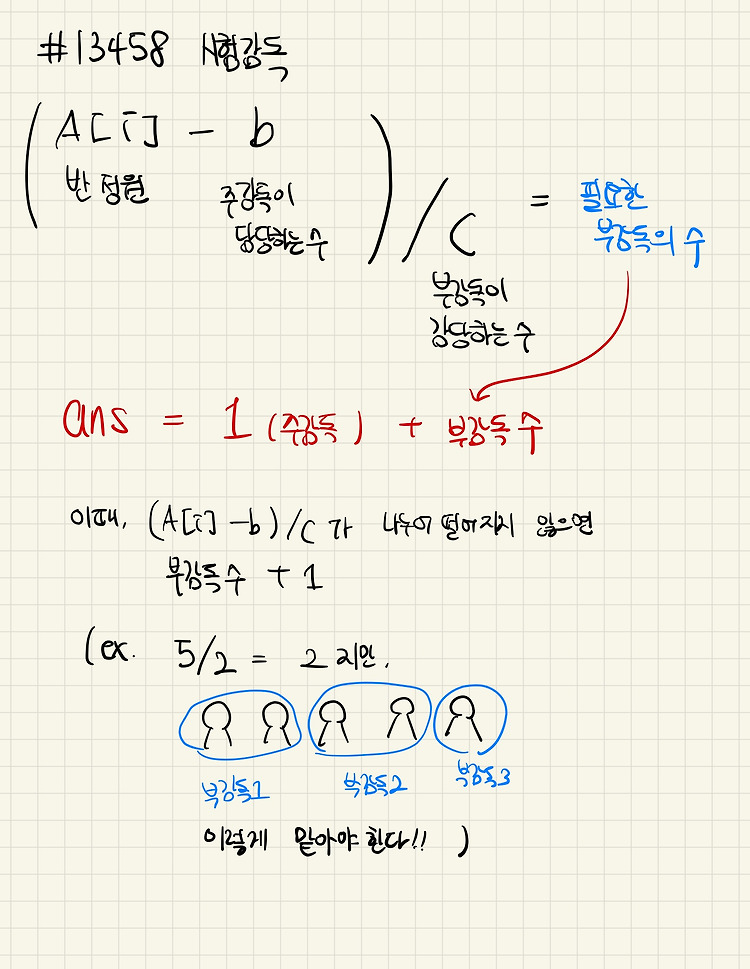 #13458 시험감독
(A[i] - b)/c = 필요한
부감독의 수
반 정원
주감독이
담당하는 수
부감독이
감당하는 수
ans = 1 (주감독) + 부감독 수
이때, (A[i] -b)/c 가 나누어 떨어지지 않으면
부감독수 + 1
(ex. 5/2 = 2 지만,
부감독1 부감독2 부감독3
이렇게 맡아야 한다!! )